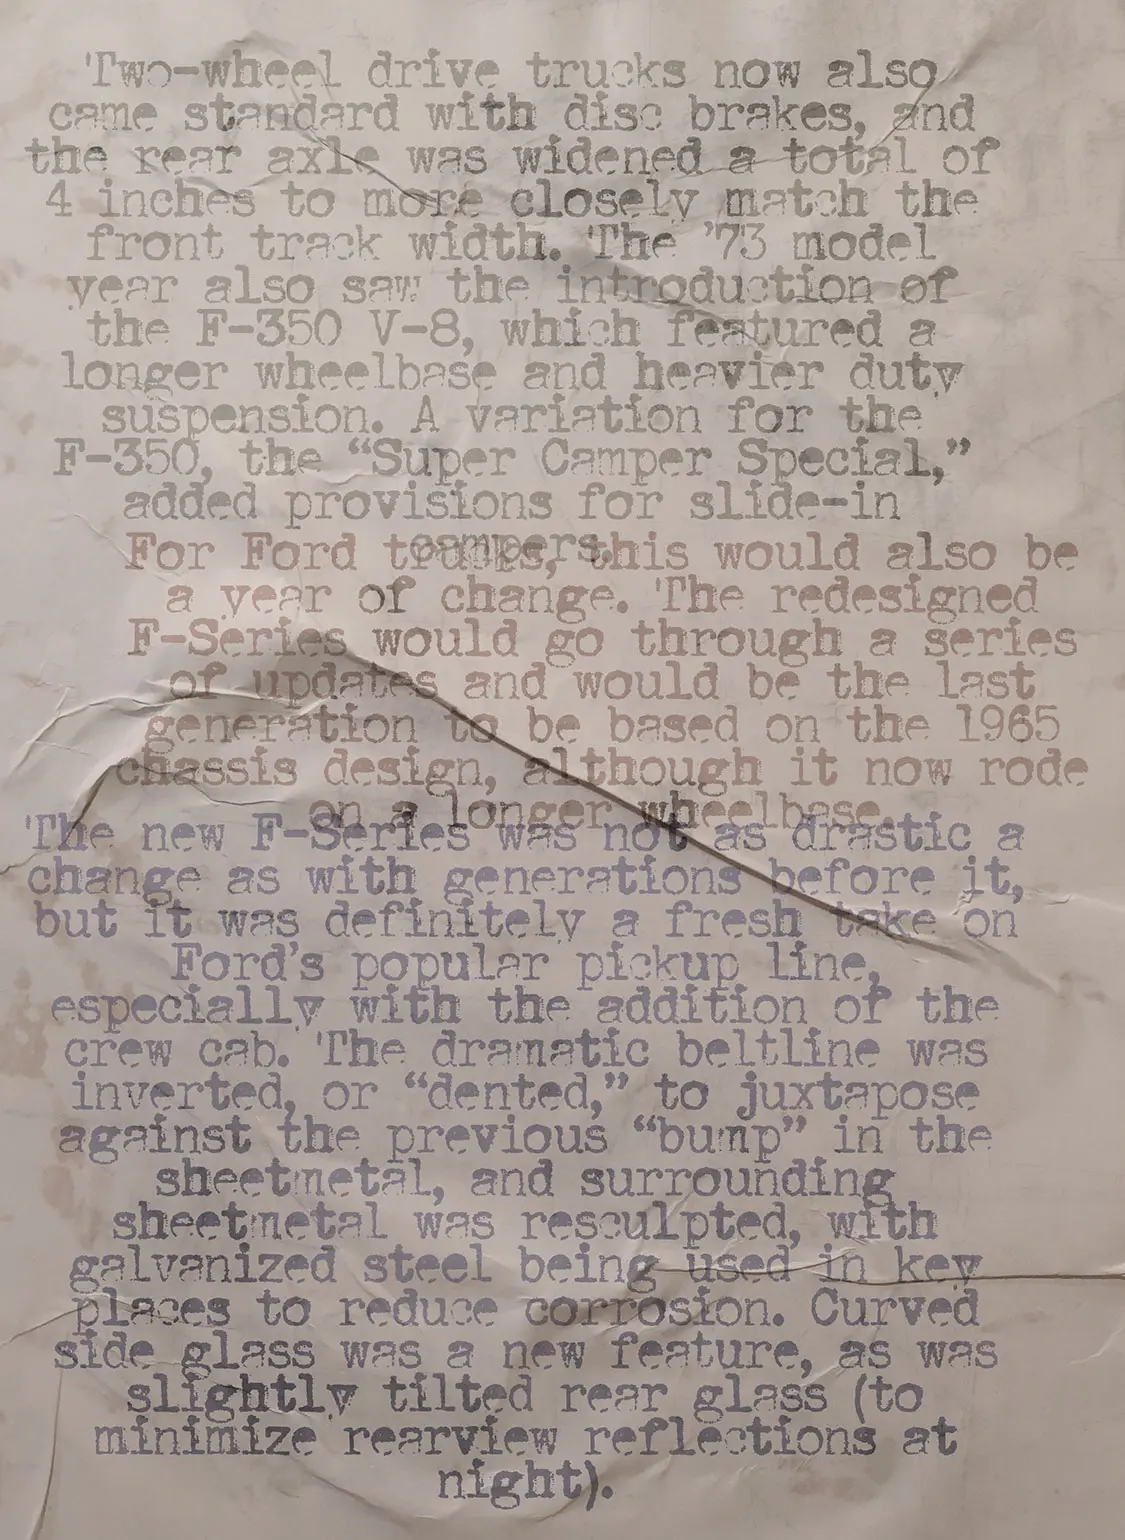 Two-wheel drive trucks now also
came standard with disc brakes, and
the rear axle was widened a total of
4 inches to more closely match the
front track width. The ’73 model
year also saw the introduction of
the F-350 V-8, which featured a
longer wheelbase and heavier duty
suspension. A variation for the
F-350, the “Super Camper Special,”
added provisions for slide-in
campers.
For Ford trucks, this would also be
a year of change. The redesigned
F-Series would go through a series
of updates and would be the last
generation to be based on the 1965
chassis design, although it now rode
on a longer wheelbase.
The new F-Series was not as drastic a
change as with generations before it,
but it was definitely a fresh take on
Ford’s popular pickup line,
especially with the addition of the
crew cab. The dramatic beltline was
inverted, or “dented,” to juxtapose
against the previous “bump” in the
sheetmetal, and surrounding
sheetmetal was resculpted, with
galvanized steel being used in key
places to reduce corrosion. Curved
side glass was a new feature, as was
slightly tilted rear glass (to
minimize rearview reflections at
night).